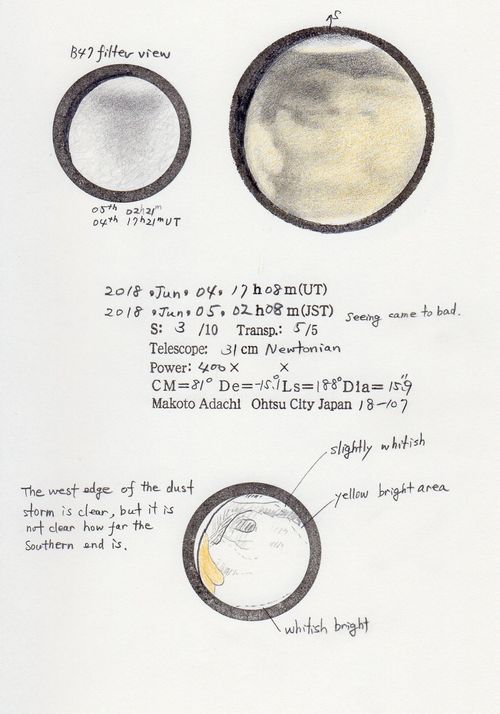 S
B47 filter view
05th 02h21m
04th 17h21m UT
2018, Jun, 04, 17h08m(UT)
2018, Jun, 05, 02h08m(JST)
Seeing came to bad.
S: 3 /10 Transp.: 5/5
Telescope: 31cm Newtonian
Power: 400× ×
CM=81° De=-15.1° Ls=188° Dia=15.9"
Makoto Adachi Ohtsu City Japan 18-107
slightly whitish
The west edge of the dust
storm is clear, but it is
not clear how far the
Southern end is.
yellow bright area
whitish bright